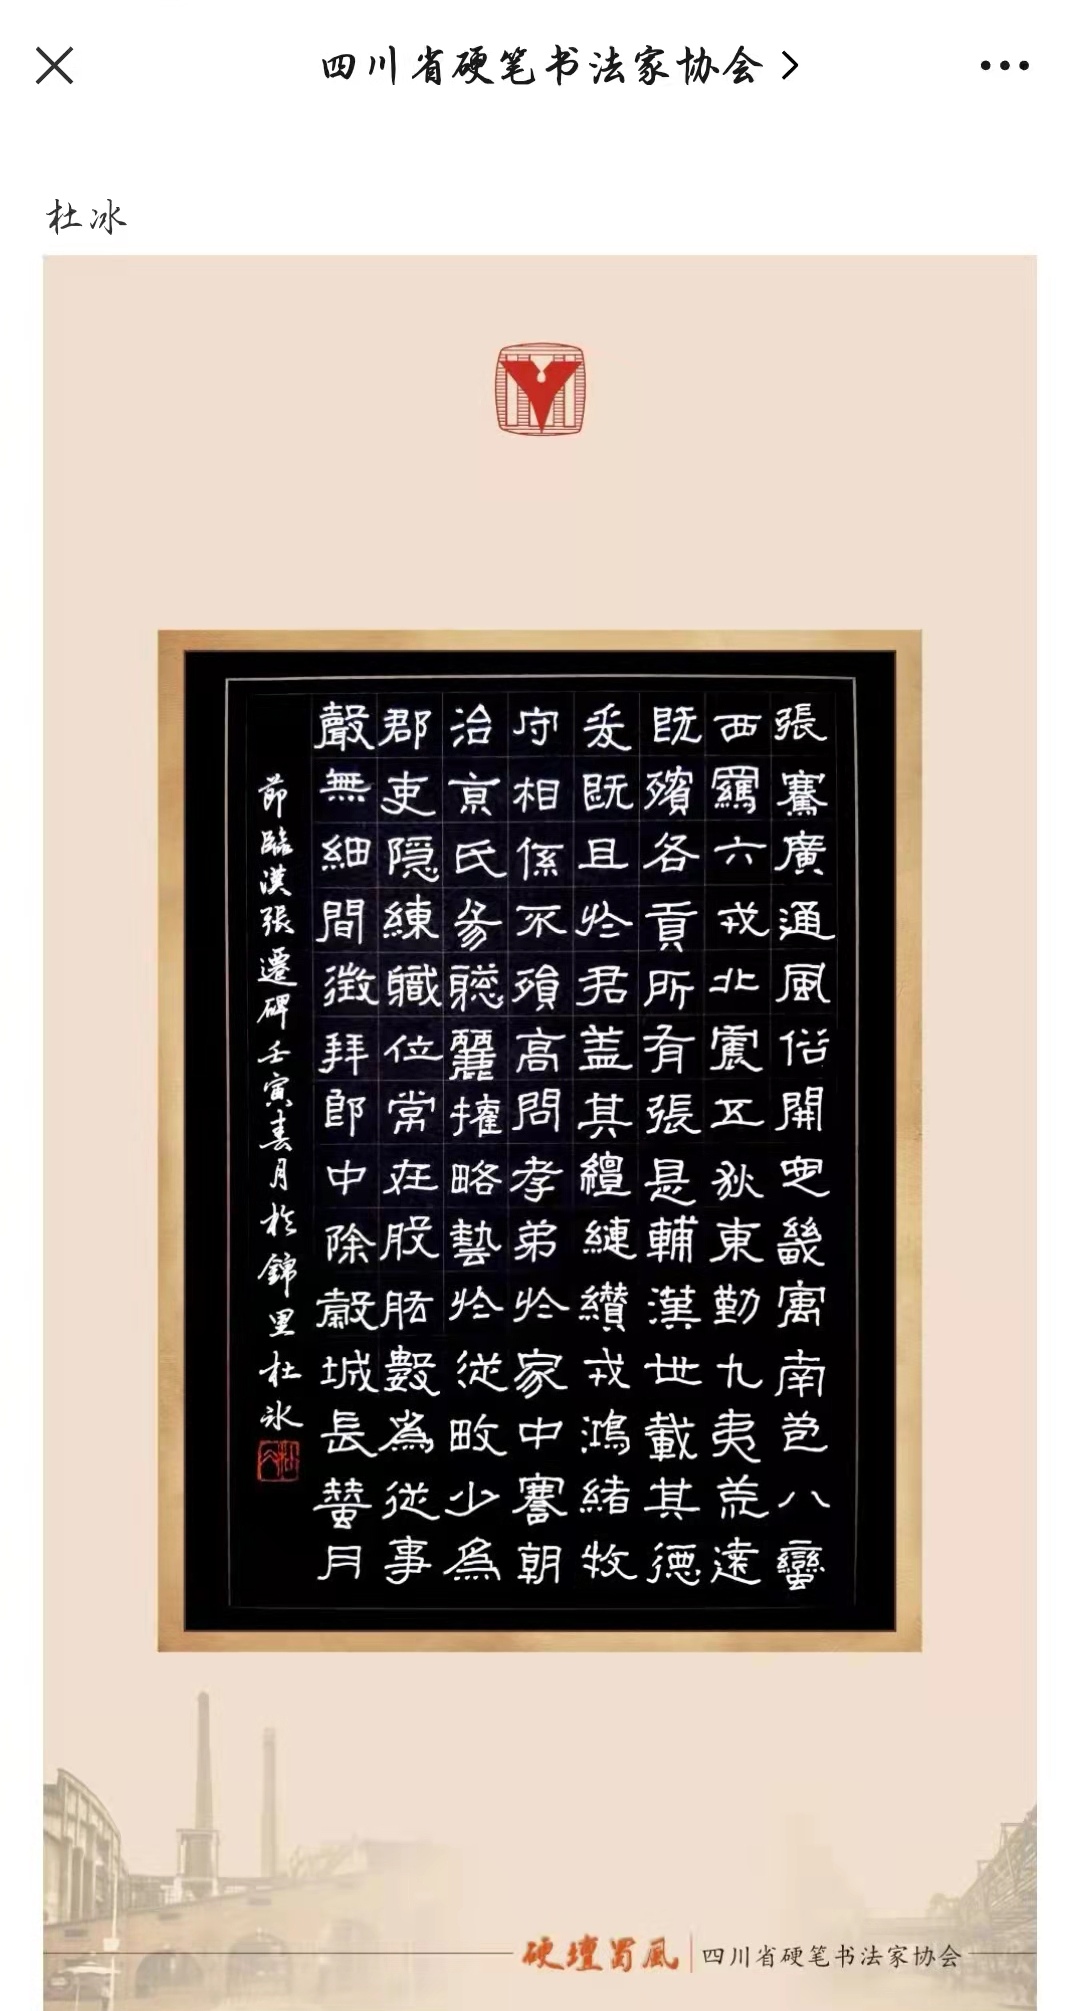 四川省硬笔书法家协会
杜冰
張騫廣通風俗開定畿寓南苞八蠻
西羈六戎北震五狄東勤九夷荒遠
既殯各貢所有張是輔漢世載其德
爰既且於君盖其繵縺纘戎鴻緒牧
守相係不殞高問孝弟於家中謇朝
治京氏易聡麗權略藝於從畋少為
郡吏隱練職位常在股肱數為從事
聲無細聞徴拜郎中除穀城長蠶月
節臨漢張遷碑壬寅春月於錦里杜冰
硬壇蜀風
四川省硬笔书法家协会